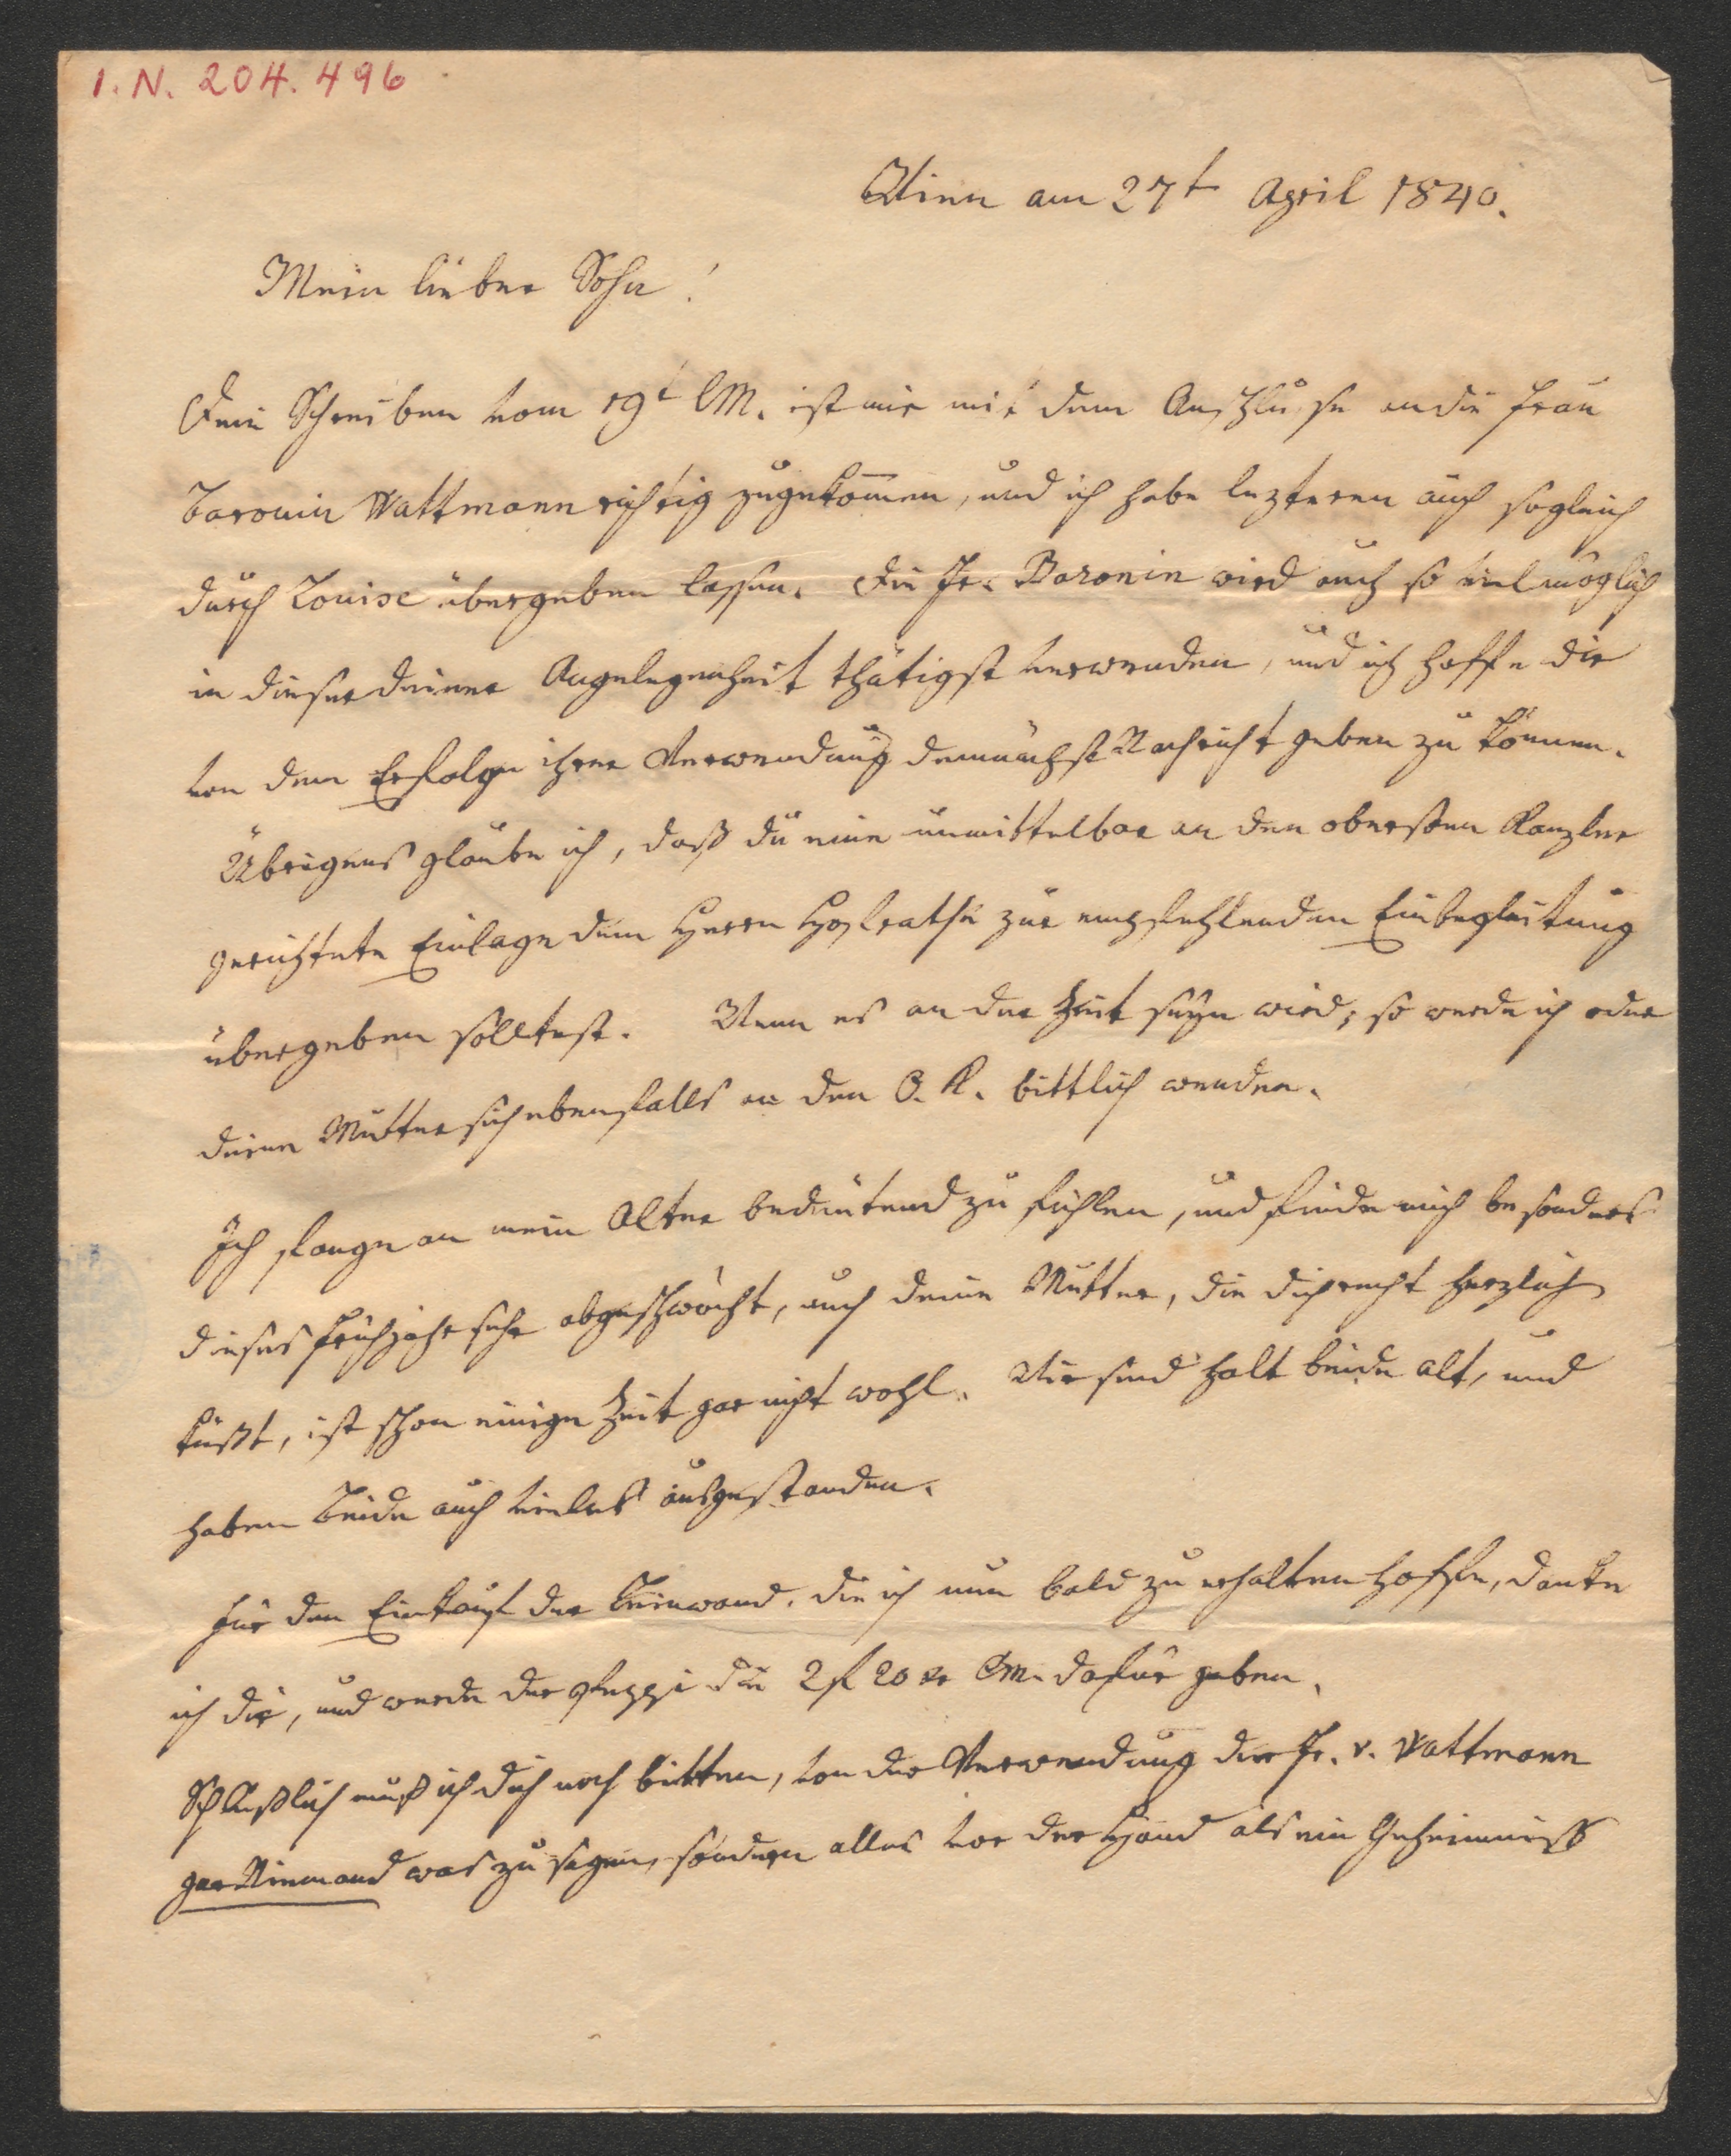 I. N. 204.496
Wien am 27t April 1840.
Mein lieber Sohn!
Dein Schreiben vom 19t l M. ist mir mit dem Anschluße an die Frau
Baronin Wattmann richtig zugekomen, und ich habe lezteren auch sogleich
durch Louise übergeben lassen. Die Fr. Baronin wird auch so viel möglich
in dieser deiner Angelegenheit thätigst verwenden, und ich hoffe dir
von dem Erfolge ihrer Verwendung demnächst Nachricht geben zu können.
Übrigens glaube ich, daß du eine unmittelbar an den obersten Kanzler
gerichtete Einlage dem Herrn Hofrathe zur empfehlenden Einbegleitung
übergeben solltest. Wenn es an der Zeit seyn wird, so werde ich oder
deine Mutter sich ebenfalls an den O. K. bittlich wenden.
Ich fange an mein Alter bedeutend zu fühlen, und finde mich besonders
dieses Frühjahr sehr abgeschwächt, auch deine Mutter, die dich recht herzlich
küßt, ist schon einige Zeit gar nicht wohl. Wir sind halt beide alt, und
haben beide auch vieles ausgestanden.
Für den Einkauf der Leinwand, die ich nun bald zu erhalten hoffe, danke
ich dir, und werde der Peppi die 2 f 20 xr CM. dafür geben.
Schlüßlich muß ich dich noch bitten, von der Verwendung der Fr. v. Wattmann
gar Niemand was zu sagen, sondern alles vor der Hand als ein Geheimniß